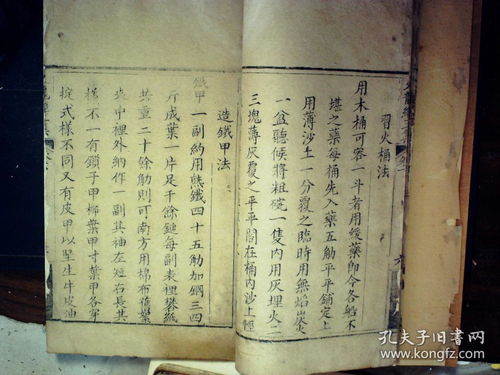 習火桶法
用木桶可容一斗者用緩藥師令各船不
堪之藥每桶先入藥五觔平平鋪定上
用薄沙土一分覆之臨時用無焰炭火
一盆聽候將粗碗一隻內用灰埋火二
三塊薄灰覆之平平閣在桶內沙上輕
造鐵甲法
鐵甲一副約用熟鐵四十五觔加鋼三四
斤成葉一片足千餘鏈每副表裡攀絲
共重二十餘觔則可南方用棉布舊絮
夾中裡外納作一副其袖左短右長其
樣不一有鎖子甲柳葉甲寸葉甲各穿
掟式樣不同又有皮甲以堅生牛皮油
孔夫子旧书网
www.kongfz.com